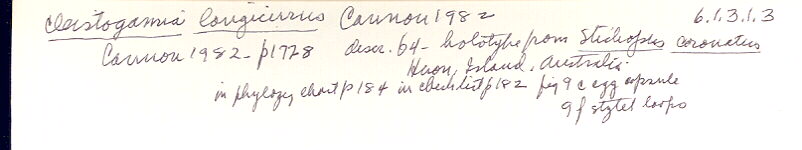 Cleistogamia longicirrus Cannon 1982 6.1.3.1.3
Cannon 1982 - p1778 descr. 64 - holotype from Stichopus coronatus
Heron, Island, Australia
in phylogy chart p 184 in checklist p182 fig 9 c egg capsule
9 f stylet loops